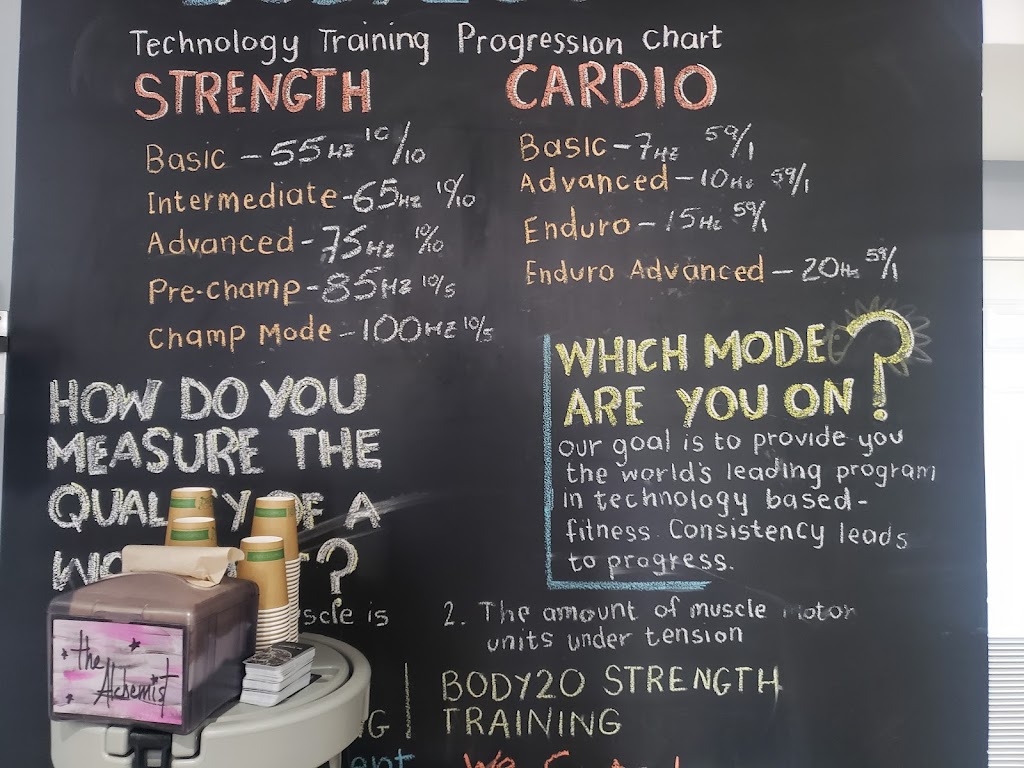 Technology Training Progression chart
STRENGTH
Basic - 55Hz 10/10
Intermediate - 65Hz 10/10
Advanced - 75Hz 10/10
Pre-champ - 85Hz 10/5
Champ Mode - 100Hz 10/5
CARDIO
Basic - 7Hz 59/1
Advanced - 10Hz 59/1
Enduro - 15Hz 59/1
Enduro Advanced - 20Hz 59/1
WHICH MODE
ARE YOU ON?
our goal is to provide you
the world's leading program
in technology based-
fitness. Consistency leads
to progress.
HOW DO YOU
MEASURE THE
OF A
?
is
2. The amount of muscle motor
units under tension
BODY20 STRENGTH
TRAINING
the
Alchemist